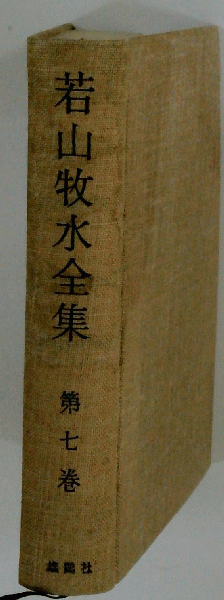 若山牧水全集
第七巻
雄鶏社